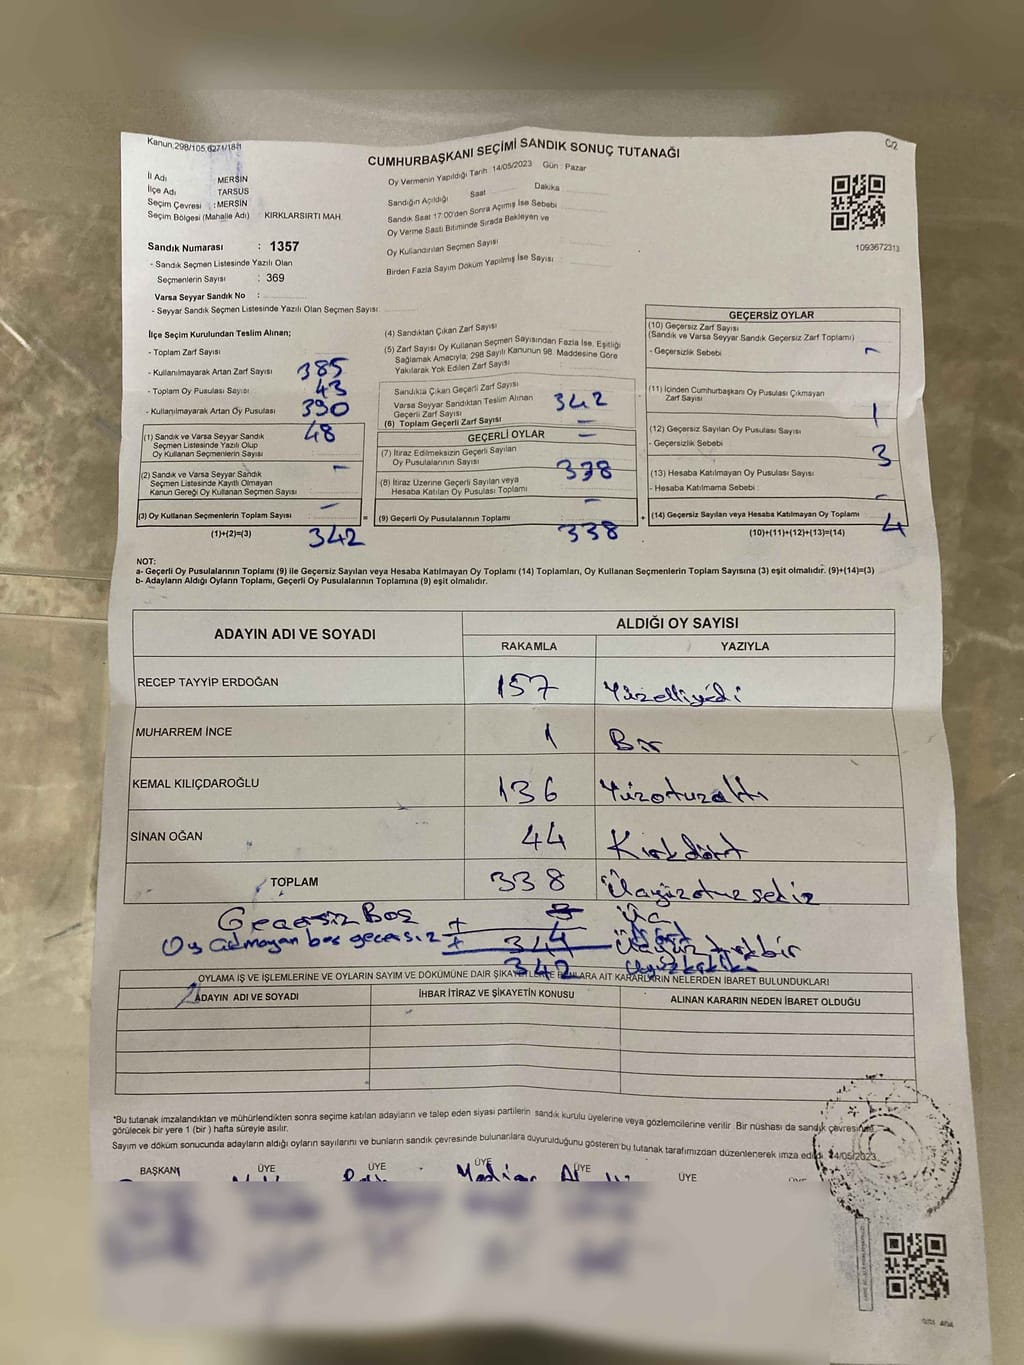 Kanun.298/105,6271/18/1
C/2
CUMHURBAŞKANI SEÇİMİ SANDIK SONUÇ TUTANAĞI
İl Adı MERSİN
İlçe Adı TARSUS
Seçim Çevresi : MERSİN
Seçim Bölgesi (Mahalle Adı) KIRKLARSIRTI MAH
Sandık Numarası : 1357
- Sandık Seçmen Listesinde Yazılı Olan
Seçmenlerin Sayısı : 369
Varsa Seyyar Sandık No :
- Seyyar Sandık Seçmen Listesinde Yazılı Olan Seçmen Sayısı
Oy Vermenin Yapıldığı Tarih 14/05/2023 Gün : Pazar
Sandığın Açıldığı Saat Dakika
Sandık Saat 17:00'den Sonra Açılmış İse Sebebi
Oy Verme Saati Bitiminde Sırada Bekleyen ve
Oy Kullandırılan Seçmen Sayısı
Birden Fazla Sayım Döküm Yapılmış İse Sayısı :
1093672313
İlçe Seçim Kurulundan Teslim Alınan;
- Toplam Zarf Sayısı
- Kullanılmayarak Artan Zarf Sayısı 385
- Toplam Oy Pusulası Sayısı 43
- Kullanılmayarak Artan Oy Pusulası 390
48
(1) Sandık ve Varsa Seyyar Sandık
Seçmen Listesinde Yazılı Olup
Oy Kullanan Seçmenlerin Sayısı
-
(2) Sandık ve Varsa Seyyar Sandık
Seçmen Listesinde Kayıtlı Olmayan
Kanun Gereği Oy Kullanan Seçmen Sayısı
-
(3) Oy Kullanan Seçmenlerin Toplam Sayısı =
(1)+(2)=(3) 342
(4) Sandıktan Çıkan Zarf Sayısı
(5) Zarf Sayısı Oy Kullanan Seçmen Sayısından Fazla İse, Eşitliği
Sağlamak Amacıyla; 298 Sayılı Kanunun 98. Maddesine Göre
Yakılarak Yok Edilen Zarf Sayısı
Sandıkta Çıkan Geçerli Zarf Sayısı
Varsa Seyyar Sandıktan Teslim Alınan
Geçerli Zarf Sayısı 342
(6) Toplam Geçerli Zarf Sayısı -
GEÇERLİ OYLAR -
(7) İtiraz Edilmeksizin Geçerli Sayılan
Oy Pusulalarının Sayısı 338
(8) İtiraz Üzerine Geçerli Sayılan veya
Hesaba Katılan Oy Pusulası Toplamı
-
(9) Geçerli Oy Pusulalarının Toplamı +
338
GEÇERSİZ OYLAR
(10) Geçersiz Zarf Sayısı
(Sandık ve Varsa Seyyar Sandık Geçersiz Zarf Toplamı)
- Geçersizlik Sebebi -
(11) İçinden Cumhurbaşkanı Oy Pusulası Çıkmayan
Zarf Sayısı
1
(12) Geçersiz Sayılan Oy Pusulası Sayısı
- Geçersizlik Sebebi 3
(13) Hesaba Katılmayan Oy Pusulası Sayısı
- Hesaba Katılmama Sebebi : -
(14) Geçersiz Sayılan veya Hesaba Katılmayan Oy Toplamı 4
(10)+(11)+(12)+(13)=(14)
NOT:
a- Geçerli Oy Pusulalarının Toplamı (9) ile Geçersiz Sayılan veya Hesaba Katılmayan Oy Toplamı (14) Toplamları, Oy Kullanan Seçmenlerin Toplam Sayısına (3) eşit olmalıdır. (9)+(14)=(3)
b- Adayların Aldığı Oyların Toplamı, Geçerli Oy Pusulalarının Toplamına (9) eşit olmalıdır.
ADAYIN ADI VE SOYADI ALDIĞI OY SAYISI
RAKAMLA YAZIYLA
RECEP TAYYİP ERDOĞAN 157 Yüzelliyedi
MUHARREM İNCE 1 Bir
KEMAL KILIÇDAROĞLU 136 Yüzotuzaltı
SİNAN OĞAN 44 Kırkdört
TOPLAM 338 Üçyüzotuzsekiz
Geçersiz Boş + 3 Üç
Oy çıkmayan boş geçersiz + 4
341 Üçyüz kırkbir
342 Üçyüzkırkiki
OYLAMA İŞ VE İŞLEMLERİNE VE OYLARIN SAYIM VE DÖKÜMÜNE DAİR ŞİKAYETLERLE BUNLARA AİT KARARLARIN NELERDEN İBARET BULUNDUKLARI
ADAYIN ADI VE SOYADI İHBAR İTİRAZ VE ŞİKAYETİN KONUSU ALINAN KARARIN NEDEN İBARET OLDUĞU
*Bu tutanak imzalandıktan ve mühürlendikten sonra seçime katılan adayların ve talep eden siyasi partilerin sandık kurulu üyelerine veya gözlemcilerine verilir. Bir nüshası da sandık çevresinde
görülecek bir yere 1 (bir) hafta süreyle asılır.
Sayım ve döküm sonucunda adayların aldığı oyların sayılarını ve bunların sandık çevresinde bulunanlara duyurulduğunu gösteren bu tutanak tarafımızdan düzenlenerek imza edildi. 14/05/2023
BAŞKAN ÜYE ÜYE ÜYE ÜYE ÜYE